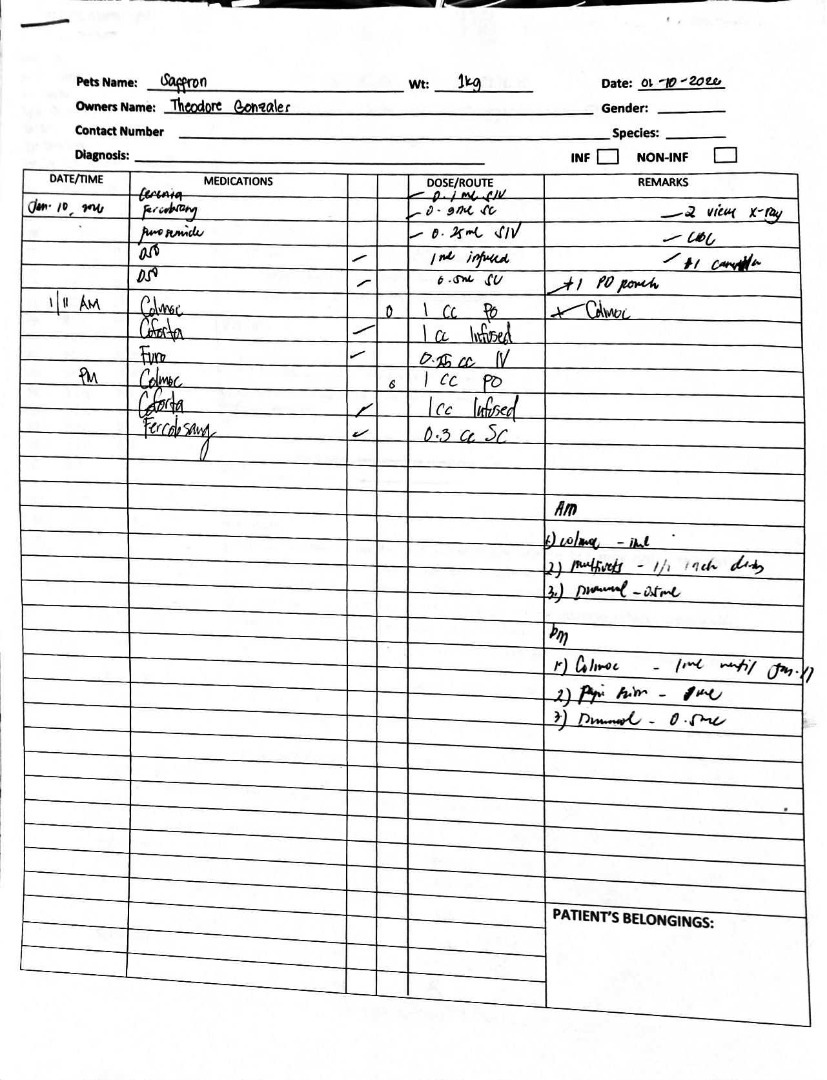 Pets Name: Saffron Wt: 1kg Date: 01-10-2026
Owners Name: Theodore Gonzalez Gender:
Contact Number Species:
Diagnosis: INF NON-INF
DATE/TIME MEDICATIONS DOSE/ROUTE REMARKS
Cerenia 0.1 ml SIV
Jan. 10, Fercobsang SC 2 view x-ray
furosemide 0.25ml SIV CBC
1 ml infused #1
0.5ml #1 PO pouch
1/11 AM Colmoc 0 1 cc PO + Colmoc
Coforta 1 cc Infused
Furo cc IV
PM Colmoc 1 cc PO
Coforta 1cc Infused
Fercobsang 0.3 cc SC
Am
1) colmoc - 1ml
2) multivits - inch
3.) - 0.5ml
pm
1) Colmoc - 1ml until Jan. 17
2)
3) - 0.5ml
PATIENT'S BELONGINGS: